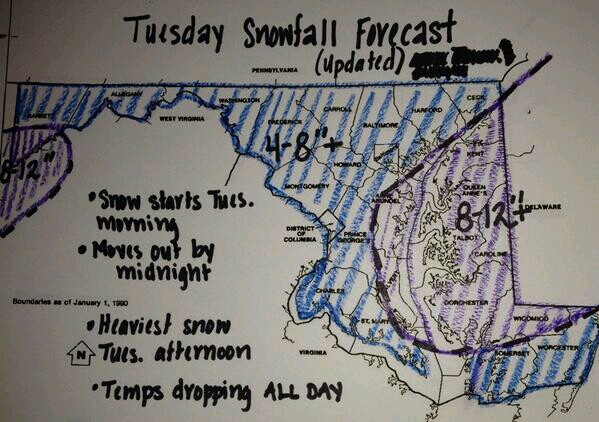 Tuesday Snowfall Forecast
(updated)
PENNSYLVANIA
ALLEGANY
WASHINGTON
CARROLL
HARFORD
CECIL
GARRETT
WEST VIRGINIA
FREDERICK
BALTIMORE
8-12"
4-8"+
KENT
HOWARD
MONTGOMERY
QUEEN
ANNE'S
ARUNDEL
8-12"+
DELAWARE
• Snow starts Tues.
morning
DISTRICT
OF
COLUMBIA
PRINCE
GEORGE'S
TALBOT
• Moves out by
midnight
CAROLINE
CHARLES
DORCHESTER
Boundaries as of January 1, 1990
WICOMICO
ST. MARY'S
• Heaviest snow
N
Tues. afternoon
VIRGINIA
SOMERSET
WORCESTER
• Temps dropping ALL DAY